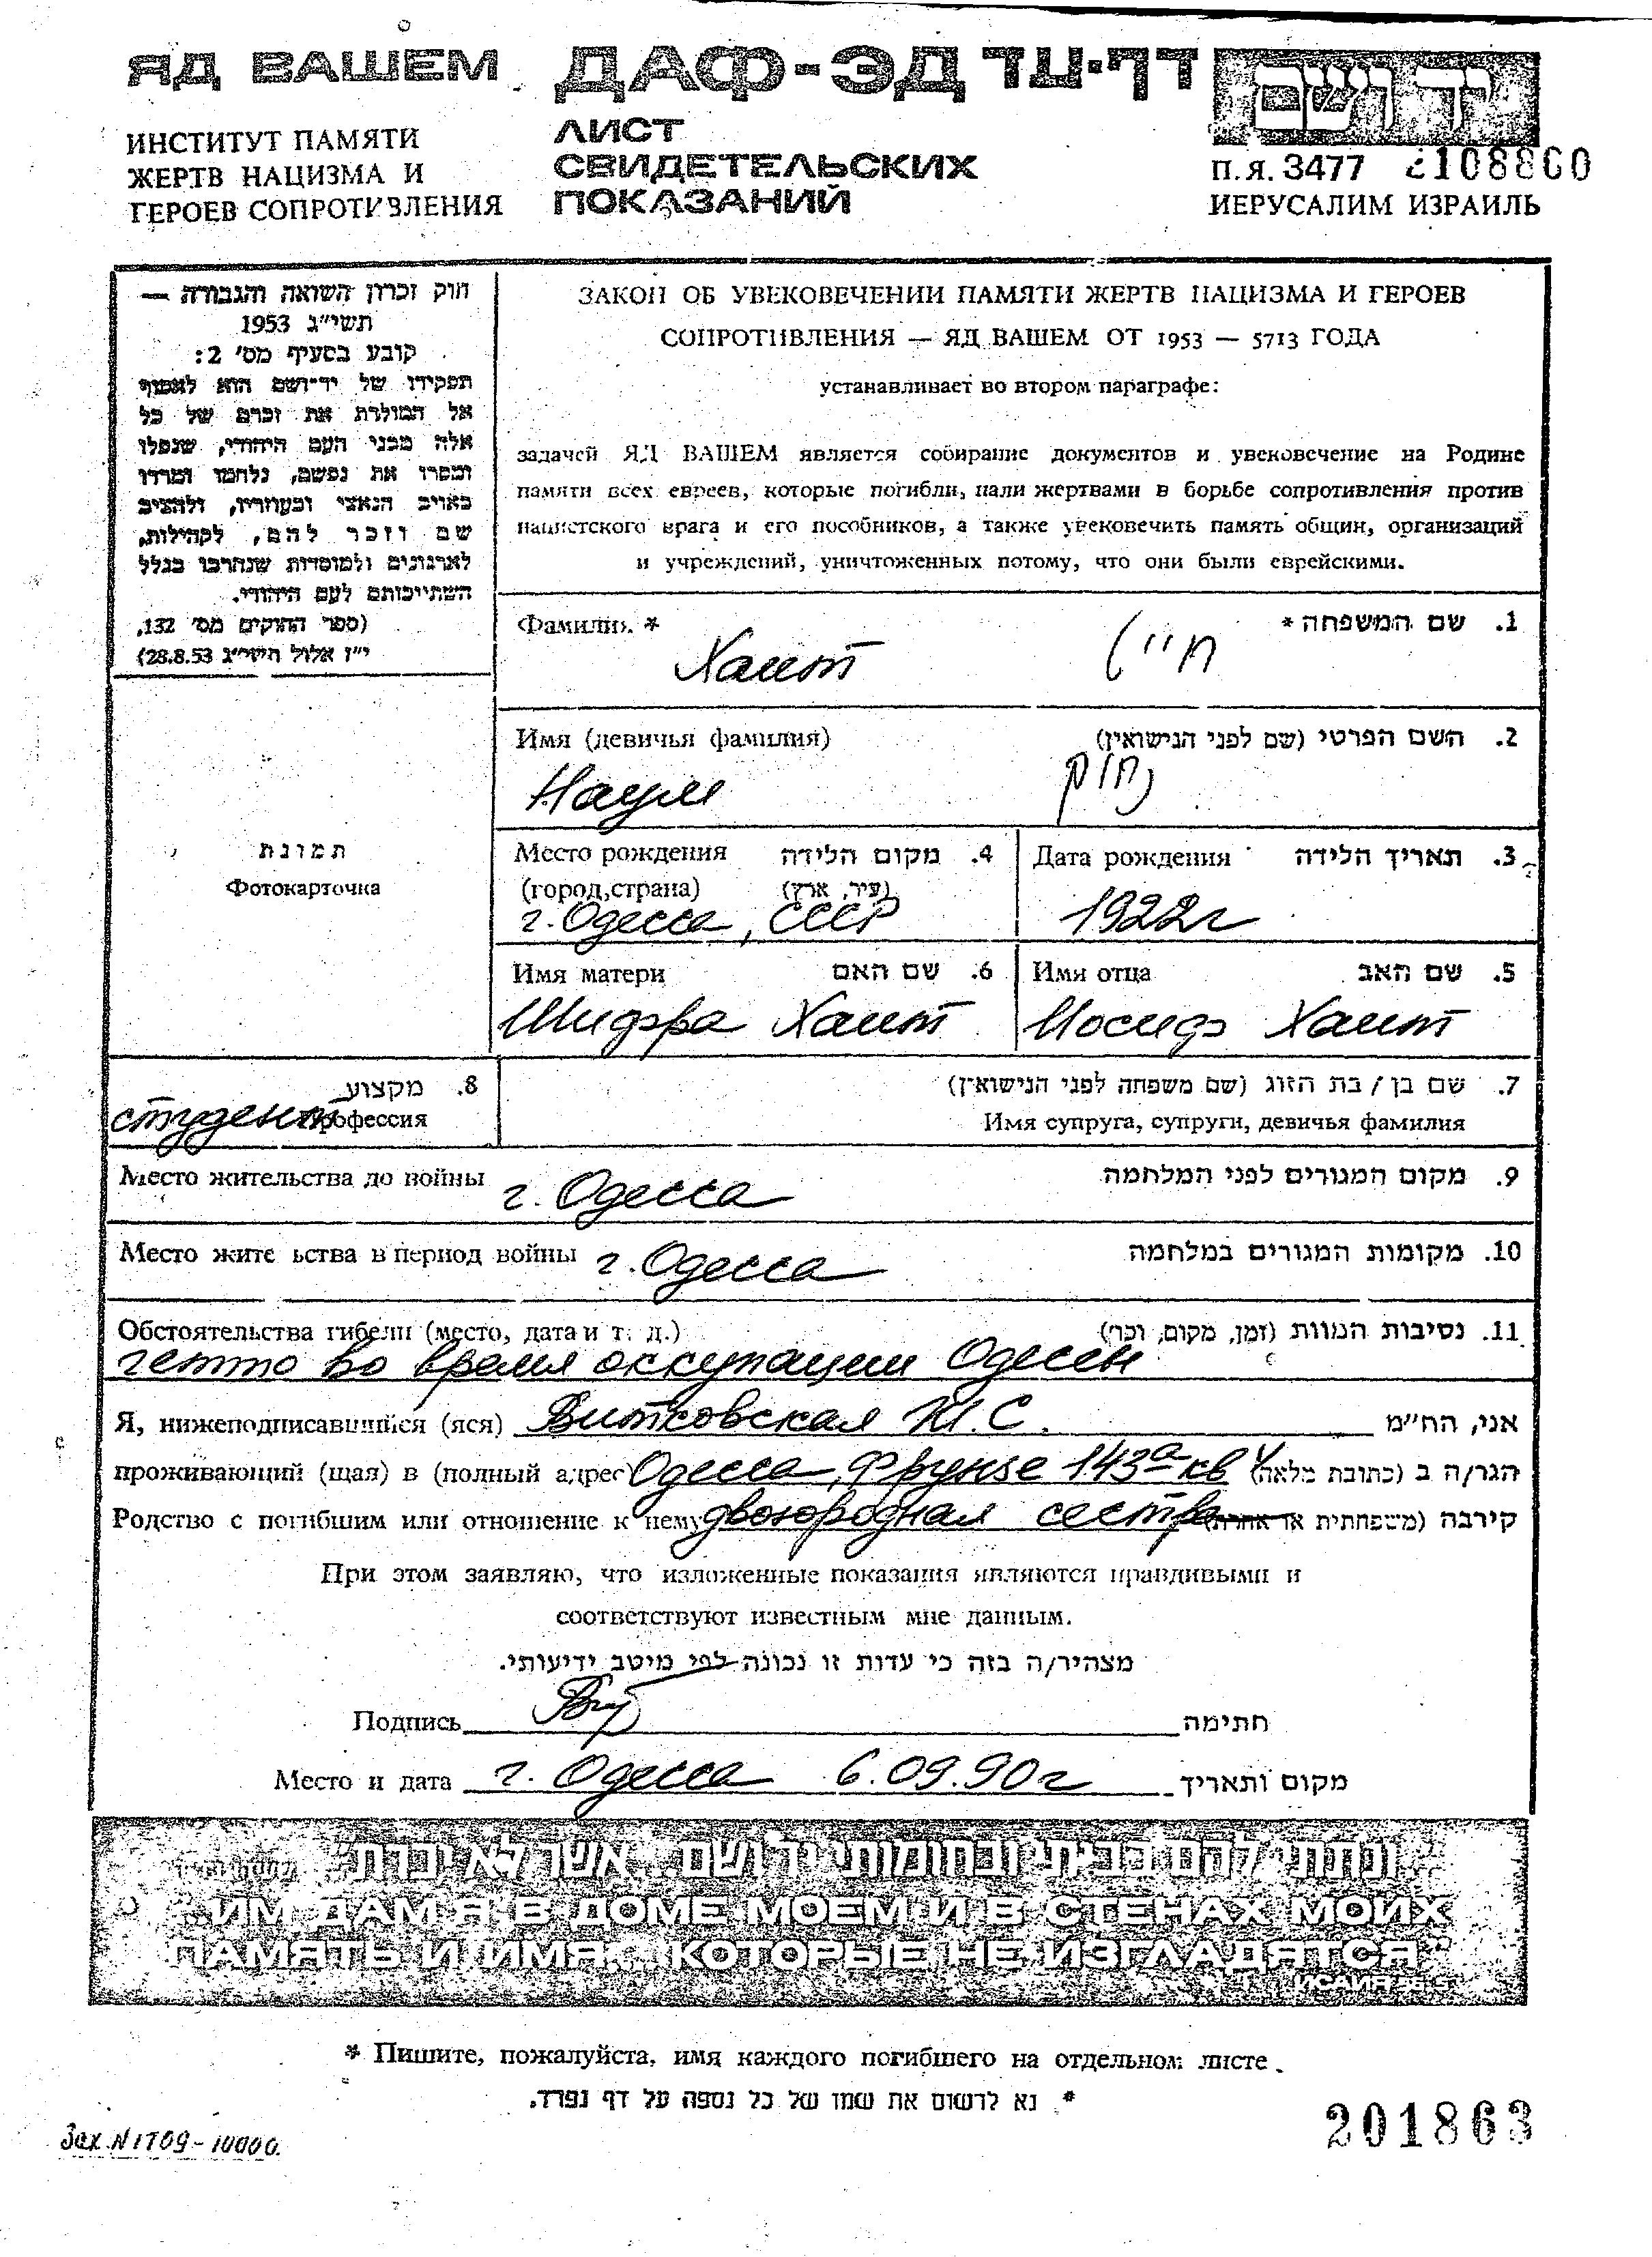 ЯД ВАШЕМ ДАФ-ЭД דף-עד יד ושם
ИНСТИТУТ ПАМЯТИ
ЖЕРТВ НАЦИЗМА И
ГЕРОЕВ СОПРОТИВЛЕНИЯ
ЛИСТ
СВИДЕТЕЛЬСКИХ
ПОКАЗАНИЙ
П.Я. 3477 2108860
ИЕРУСАЛИМ ИЗРАИЛЬ
חוק זכרון השואה והגבורה —
תשי"ג 1953
קובע בסעיף מס' 2:
תפקידו של יד-ושם הוא לאסוף
אל המולדת את זכרם של כל
אלה מבני העם היהודי, שנפלו
ומסרו את נפשם, נלחמו ומרדו
באויב הנאצי ובעוזריו, ולהציב
שם וזכר להם, לקהילות,
לארגונים ולמוסדות שנחרבו בגלל
השתייכותם לעם היהודי.
(ספר החוקים מס' 132,
י"ז אלול תשי"ג 28.8.53)
ЗАКОН ОБ УВЕКОВЕЧЕНИИ ПАМЯТИ ЖЕРТВ НАЦИЗМА И ГЕРОЕВ
СОПРОТИВЛЕНИЯ — ЯД ВАШЕМ ОТ 1953 — 5713 ГОДА
устанавливает во втором параграфе:
задачей ЯД ВАШЕМ является собирание документов и увековечение на Родине
памяти всех евреев, которые погибли, пали жертвами в борьбе сопротивления против
нацистского врага и его пособников, а также увековечить память общин, организаций
и учреждений, уничтоженных потому, что они были еврейскими.
Фамилия * 1. שם המשפחה *
Хаит
Имя (девичья фамилия) 2. השם הפרטי (שם לפני הנישואין)
Наум נחום
תמונת
Фотокарточка
Место рождения 4. מקום הלידה
(город,страна) (עיר, ארץ)
г. Одесса, СССР
Дата рождения 3. תאריך הלידה
1922г
Имя матери 6. שם האם
Шифра Хаит
Имя отца 5. שם האב
Иосиф Хаит
8. מקצוע
студент профессия
7. שם בן / בת הזוג (שם משפחה לפני הנישואין)
Имя супруга, супруги, девичья фамилия
Место жительства до войны г. Одесса 9. מקום המגורים לפני המלחמה
Место жите ьства в период войны г. Одесса 10. מקומות המגורים במלחמה
Обстоятельства гибели (место, дата и т. д.) 11. נסיבות המוות (זמן, מקום, וכו')
гетто во время оккупации Одессы
Я, нижеподписавшийся (яся) Витковская И. С. אני, הח"מ
проживающий (щая) в (полный адрес) Одесса, Фрунзе 143а кв 4 הגר/ה ב (כתובת מלאה)
Родство с погибшим или отношение к нему двоюродная сестра קירבה (משפחתית או אחרת)
При этом заявляю, что изложенные показания являются правдивыми и
соответствуют известным мне данным.
מצהיר/ה בזה כי עדות זו נכונה לפי מיטב ידיעותי.
Подпись Вит חתימה
Место и дата г. Одесса 6.09.90г מקום ותאריך
ונתתי להם בביתי ובחומותי יד ושם... אשר לא יכרת"
"...ИМ ДАМ Я В ДОМЕ МОЕМ И В СТЕНАХ МОИХ
ПАМЯТЬ И ИМЯ... КОТОРЫЕ НЕ ИЗГЛАДЯТСЯ."
* Пишите, пожалуйста, имя каждого погибшего на отдельном листе.
* נא לרשום את שמו של כל נספה על דף נפרד.
Зак N1709-10000.
201863